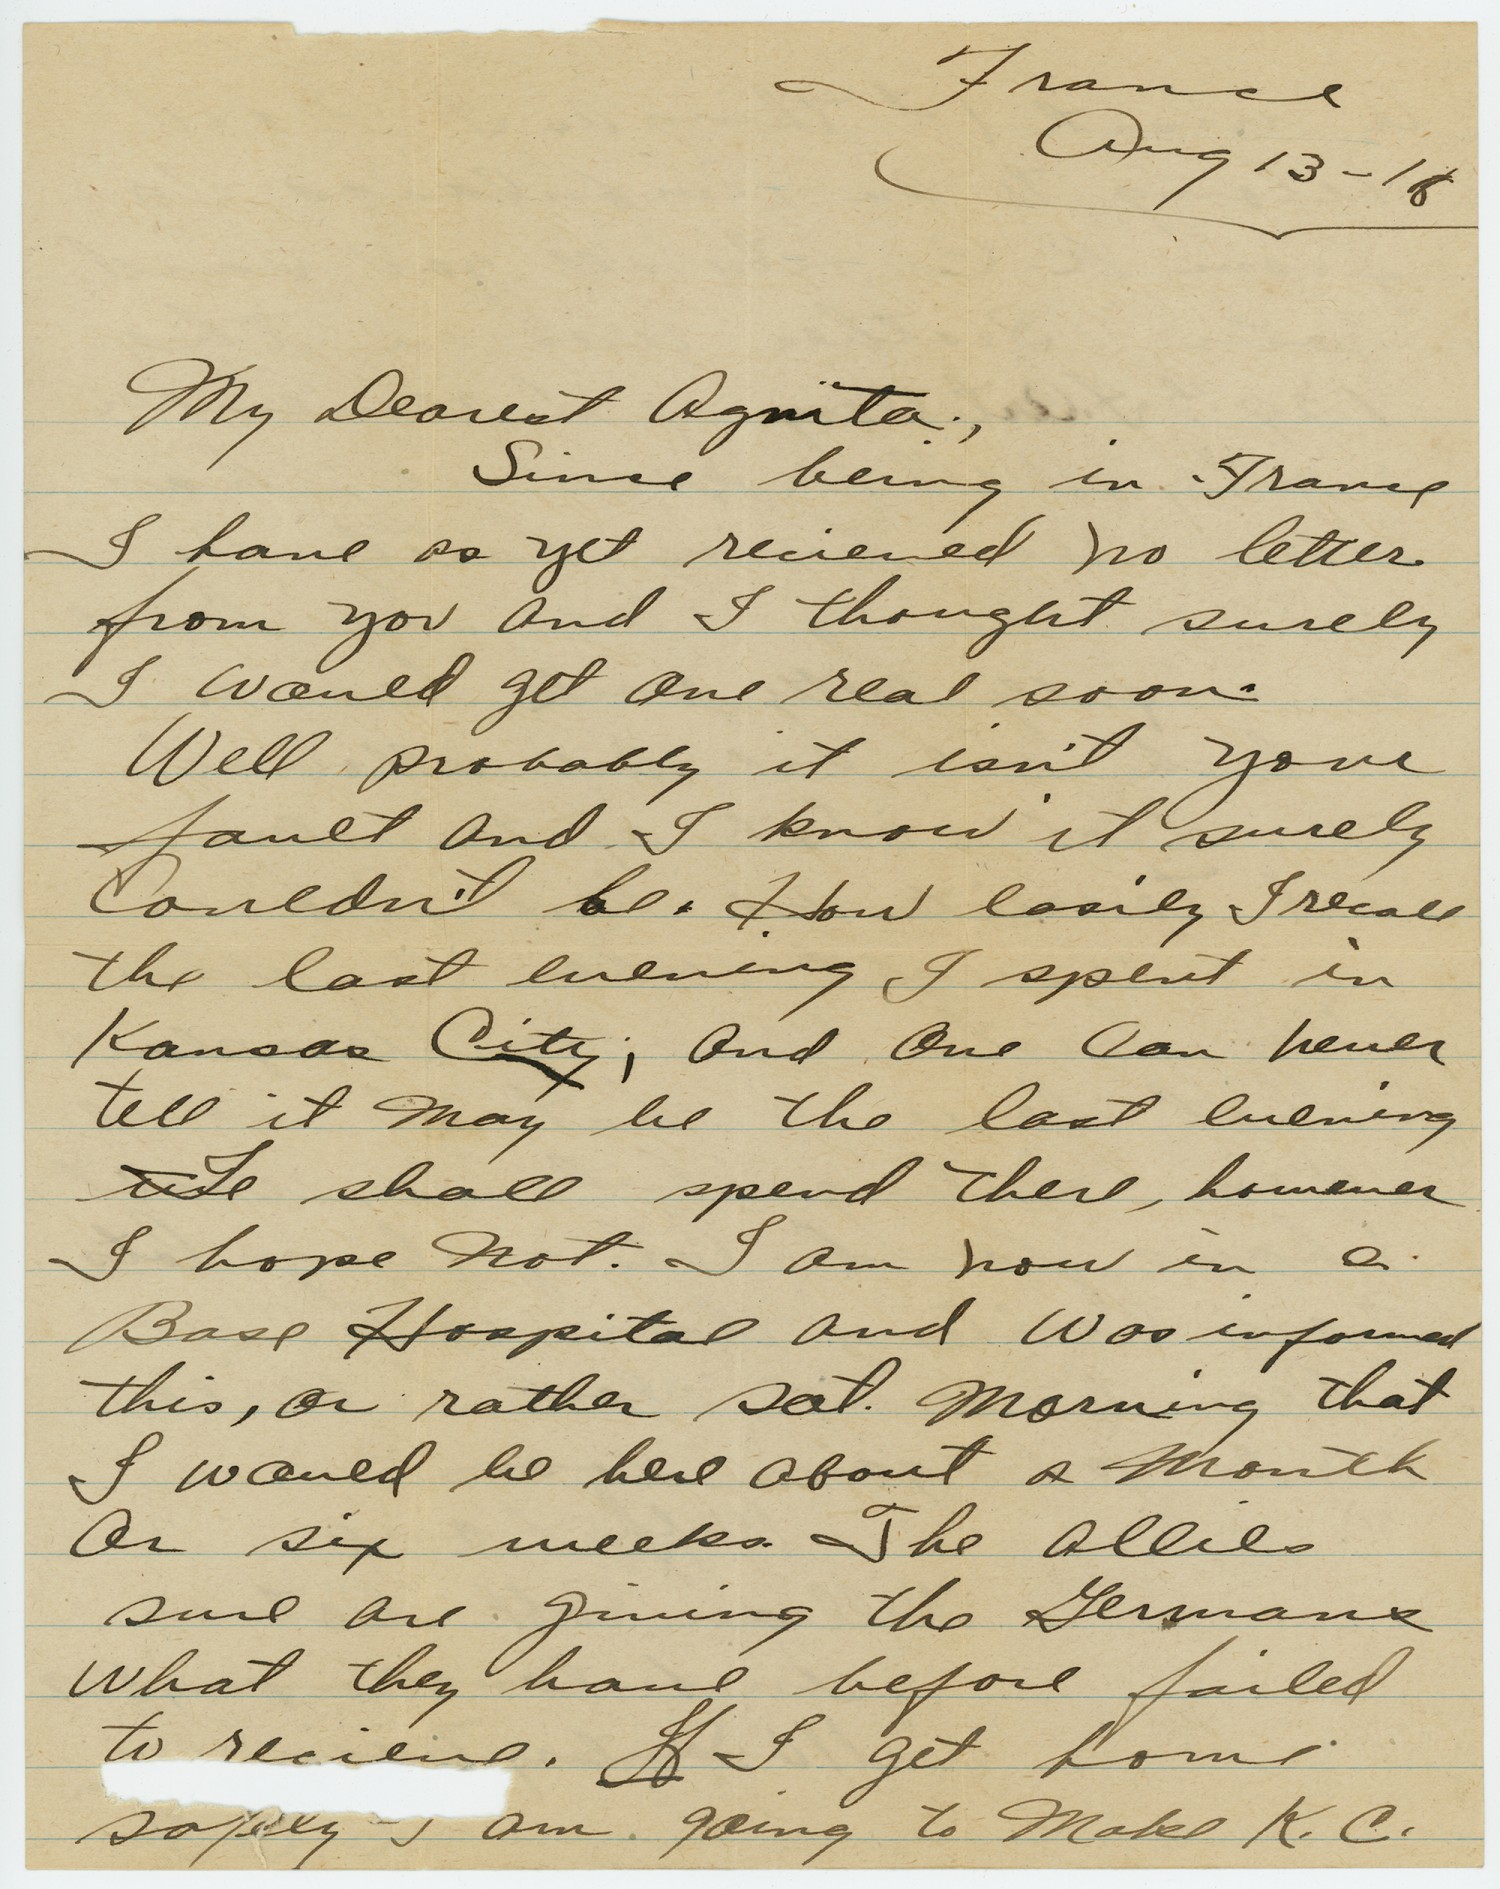 France
Aug 13-18
My Dearest Agnita.,
Since being in France
I have as yet recieved no letter
from you and I thought surely
I would get one real soon.
Well probably it isn't your
fault and I know it surely
Couldn't be. How easily I recall
the last evening I spent in
Kansas City, and one can never
tell it may be the last evening
I shall spend there, however
I hope not. I am now in a
Base Hospital and was informed
this, or rather sat. Morning that
I would be here about a Month
or six weeks. The allies
sure are giving the Germans
what they have before failed
to recieve. If I get home
safely I am going to Make K. C.